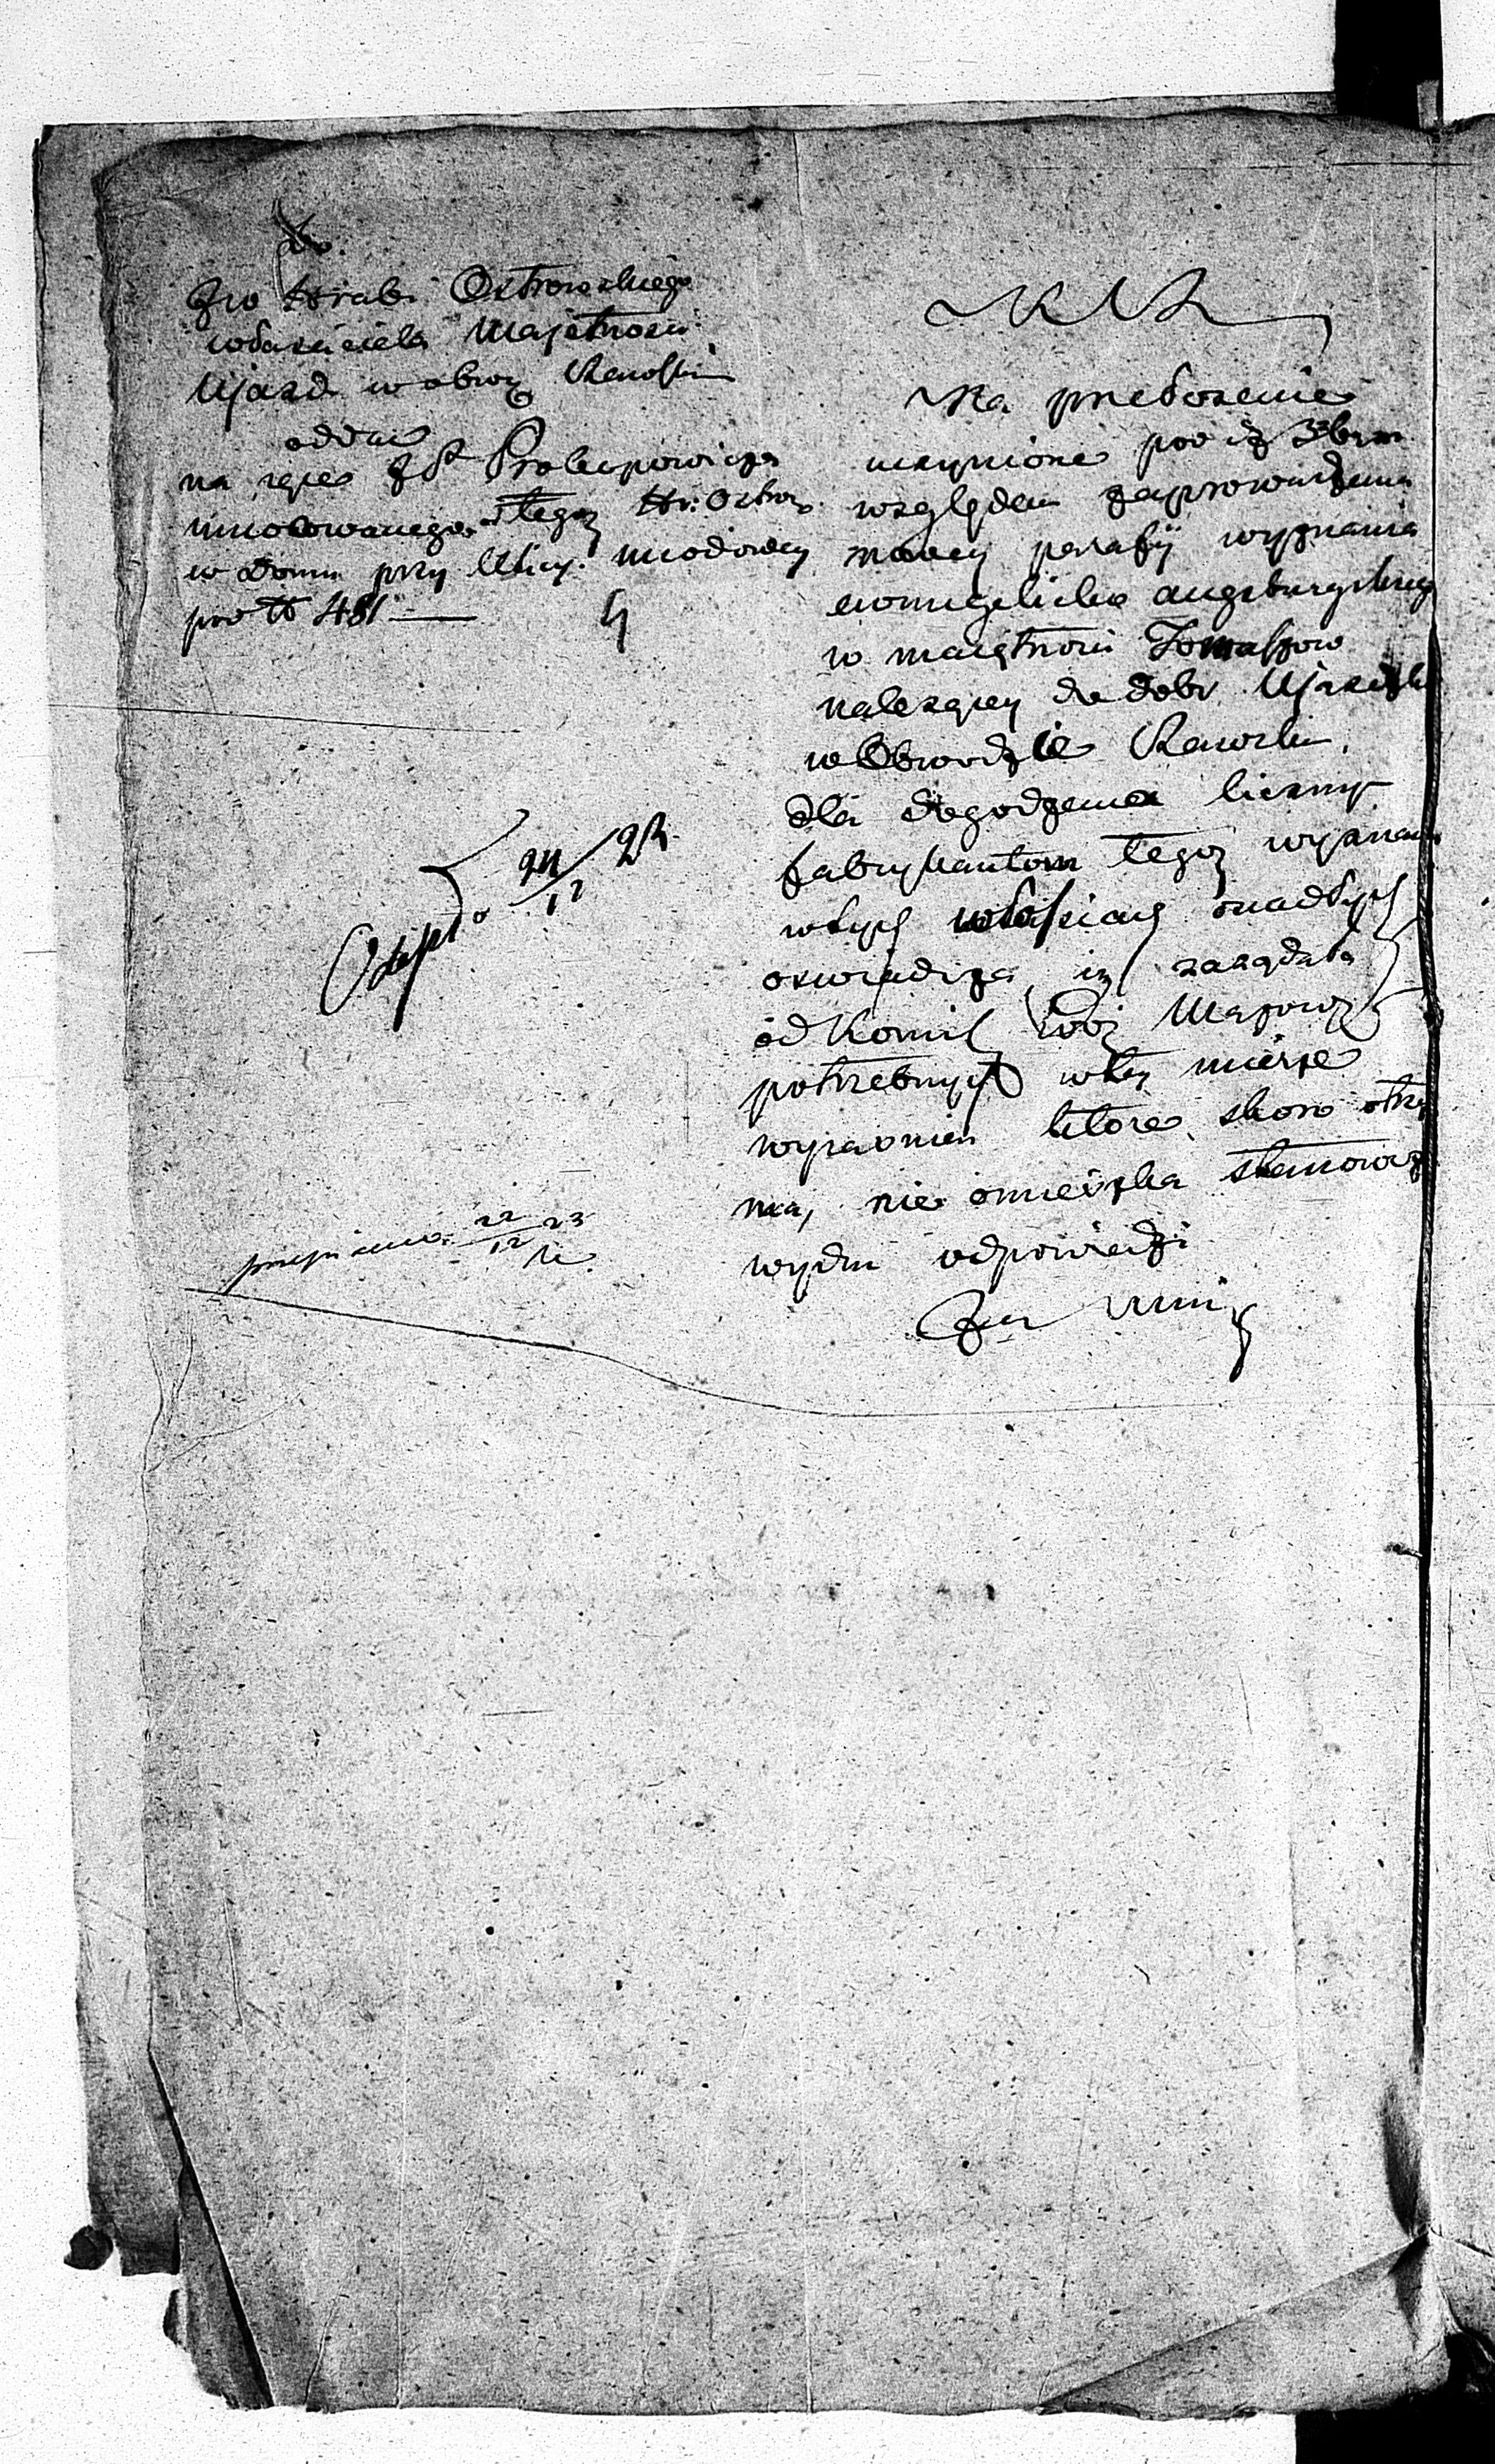 Do
JW Hrabi Ostrowskiego
właściciela Majętności
Ujazd w obwo Rawskim
oddać
na ręce JP Prokopowicza
umocowanego tegoż Hr: Ostrow.
w domu przy Ulicy Miodowey
pod N 481

Odesłano 24/12 23

przepisano 22/12 23

KRK
Na przełożenie
uczynione pod d 3
względem zaprowadzenia
nowey parafij wyznania
ewangelicko augsburgskiego
w maiętności Tomaszow
należącey do dobr Ujazd
w Obwodzie Rawskim,
dla dogodzenia licznym
fabrykantom tegoż wyznania
w tych włościach
oswiadcza, iż zażądała
od Komis Woj Mazow
potrzebnych w tey mierze
wyiasnień które skoro otrzy
ma, nie omieszka stanowczey
wydać odpowiedzi